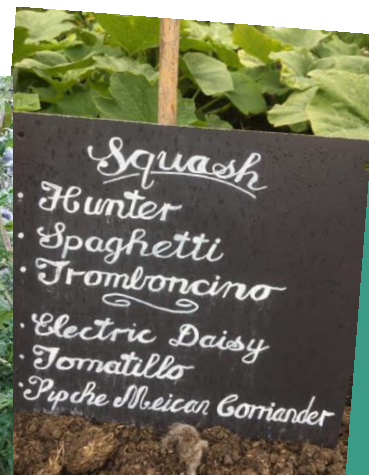 Squash
· Hunter
· Spaghetti
· Tromboncino
· Electric Daisy
· Tomatillo
· Pipche Meican Corriander